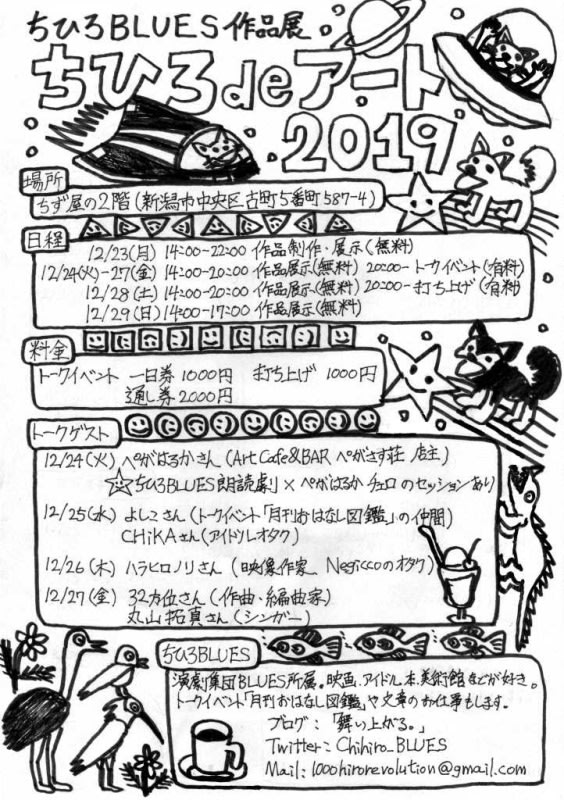 ちひろBLUES作品展
ちひろdeアート
2019
場所
ちず屋の2階(新潟市中央区古町5番町587-4)
日程
12/23(月) 14:00-22:00 作品制作・展示(無料)
12/24(火)-27(金) 14:00-20:00 作品展示(無料) 20:00- トークイベント(有料)
12/28(土) 14:00-20:00 作品展示(無料) 20:00- 打ち上げ(有料)
12/29(日) 14:00-17:00 作品展示(無料)
料金
トークイベント 一日券 1000円 打ち上げ 1000円
通し券 2000円
トークゲスト
12/24(火) ぺがはるかさん(Art Cafe&BAR ぺがさす荘 店主)
☆ちひろBLUES朗読劇×ぺがはるかチェロのセッションあり
12/25(水) よしこさん(トークイベント「月刊おはなし図鑑」の仲間)
CHiKAさん(アイドルオタク)
12/26(木) ハラヒロノリさん(映像作家 Negiccoのオタク)
12/27(金) 32方位さん(作曲・編曲家)
丸山拓真さん(シンガー)
ちひろBLUES
演劇集団BLUES所属。映画、アイドル、本、美術館などが好き。
トークイベント「月刊おはなし図鑑」や文章のお仕事もします。
ブログ:「舞い上がる。」
Twitter: Chihiro_BLUES
Mail: 1000hirorevolution@gmail.com